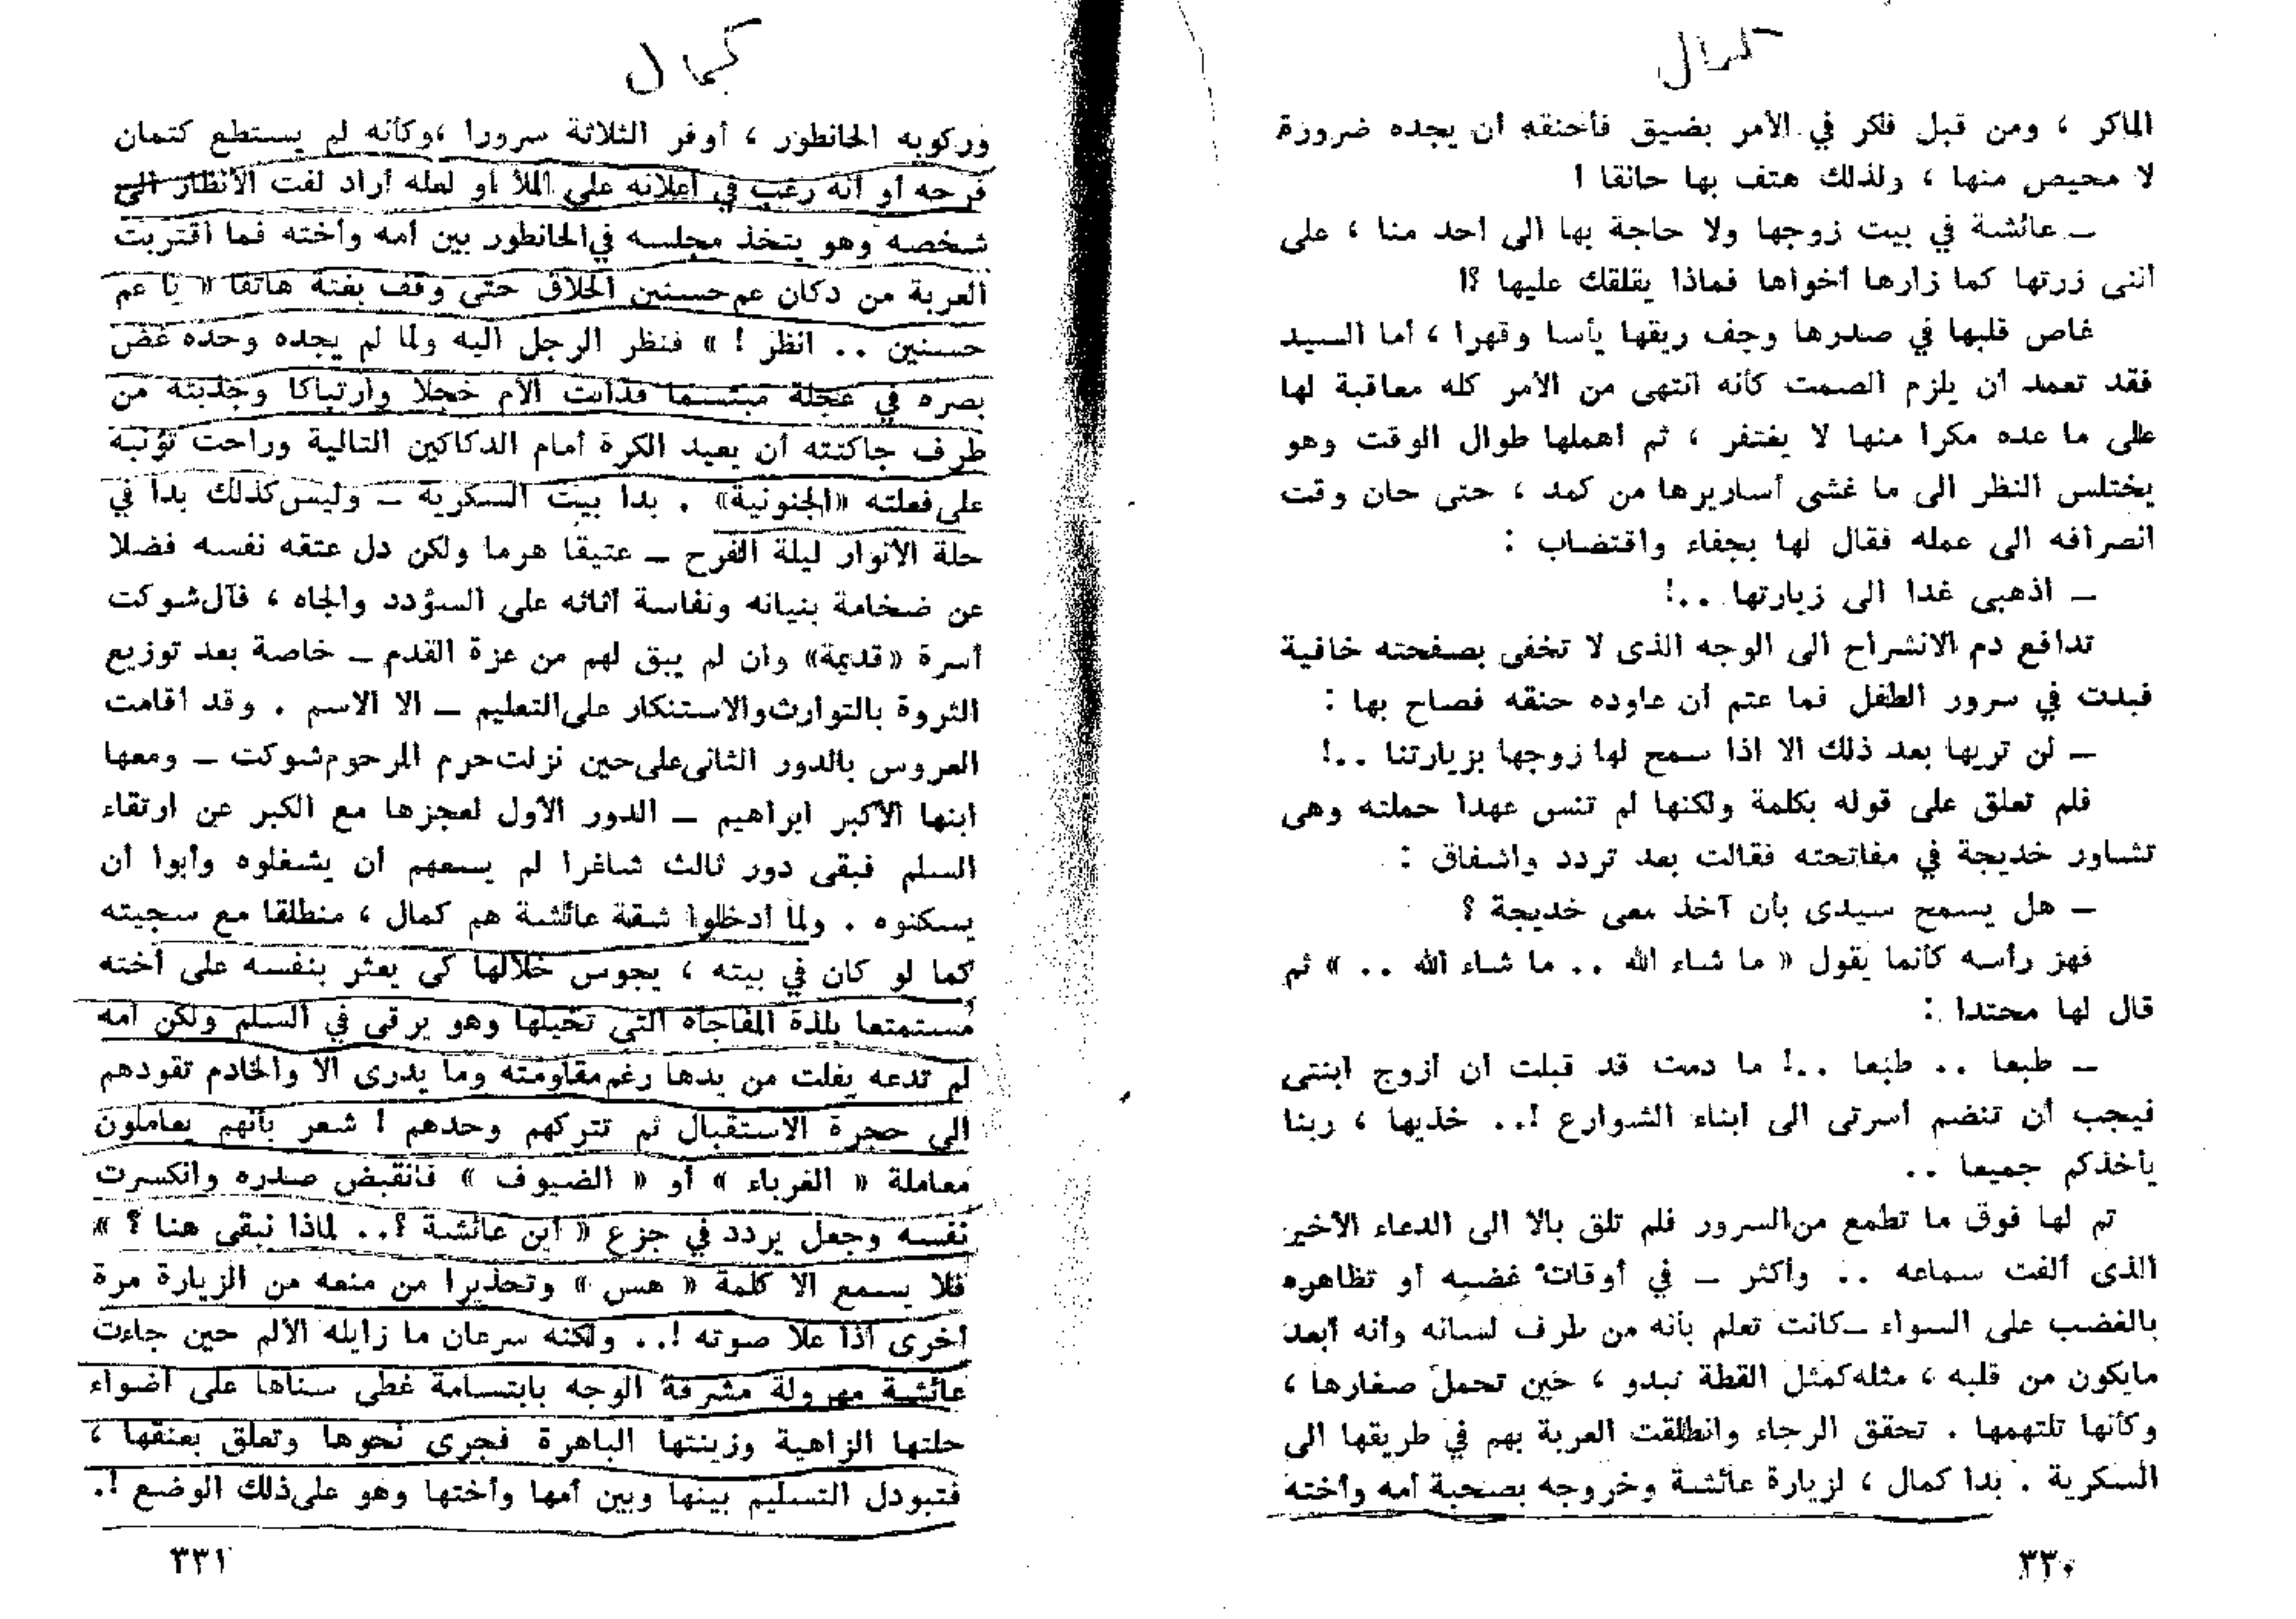 كمال
الماكر ، ومن قبل فكر في الأمر بضيق فأحنقه أن يجده ضرورة
لا محيص منها ، ولذلك هتف بها حانقا !
ـ عائشة في بيت زوجها ولا حاجة بها الى احد منا ، على
أننى زرتها كما زارها أخواها فماذا يقلقك عليها ؟!
غاص قلبها في صدرها وجف ريقها يأسا وقهرا ، أما السيد
فقد تعمد أن يلزم الصمت كأنه انتهى من الأمر كله معاقبة لها
على ما عده مكرا منها لا يغتفر ، ثم أهملها طوال الوقت وهو
يختلس النظر الى ما غشى أساريرها من كمد ، حتى حان وقت
انصرافه الى عمله فقال لها بجفاء واقتضاب :
ـ اذهبى غدا الى زيارتها ..!
تدافع دم الانشراح الى الوجه الذى لا تخفى بصفحته خافية
فبدت في سرور الطفل فما عتم أن عاوده حنقه فصاح بها :
ـ لن تريها بعد ذلك الا اذا سمح لها زوجها بزيارتنا ..!
فلم تعلق على قوله بكلمة ولكنها لم تنس عهدا حملته وهى
تشاور خديجة في مفاتحته فقالت بعد تردد واشفاق :
ـ هل يسمح سيدى بأن آخذ معى خديجة ؟
فهز رأسه كأنما يقول « ما شاء الله .. ما شاء الله .. » ثم
قال لها محتدا :
ـ طبعا .. طبعا ..! ما دمت قد قبلت ان أزوج ابنتى
فيجب أن تنضم أسرتى الى أبناء الشوارع !.. خذيها ، ربنا
يأخذكم جميعا ..
تم لها فوق ما تطمع من السرور فلم تلق بالا الى الدعاء الأخير
الذى ألفت سماعه .. وأكثر ـ في أوقات غضبه أو تظاهره
بالغضب على السواء ـ كانت تعلم بأنه من طرف لسانه وأنه أبعد
مايكون من قلبه ، مثله كمثل القطة تبدو ، حين تحمل صغارها ،
وكأنها تلتهمها . تحقق الرجاء وانطلقت العربة بهم في طريقها الى
السكرية . بدا كمال ، لزيارة عائشة وخروجه بصحبة أمه وأخته
٣٣٠
كمال
وركوبه الحانطور ، أوفر الثلاثة سرورا ،وكأنه لم يستطع كتمان
فرحه أو أنه رغب في أعلانه على الملأ أو لعله أراد لفت الأنظار الى
شخصه وهو يتخذ مجلسه في الحانطور بين أمه وأخته فما اقتربت
العربة من دكان عم حسنين الحلاق حتى وقف بغتة هاتفا « يا عم
حسنين .. انظر ! » فنظر الرجل اليه ولما لم يجده وحده غض
بصره في عجلة مبتسما فذابت الأم خجلا وارتباكا وجذبته من
طرف جاكتته أن يعيد الكرة أمام الدكاكين التالية وراحت تؤنبه
على فعلته «الجنونية» . بدا بيت السكرية ـ وليس كذلك بدا في
حلة الأنوار ليلة الفرح ـ عتيقا هرما ولكن دل عتقه نفسه فضلا
عن ضخامة بنيانه ونفاسة أثاثه على السؤدد والجاه ، فآل شوكت
أسرة «قديمة» وان لم يبق لهم من عزة القدم ـ خاصة بعد توزيع
الثروة بالتوارث والاستنكار على التعليم ـ الا الاسم . وقد أقامت
العروس بالدور الثانى على حين نزلت حرم المرحوم شوكت ـ ومعها
ابنها الأكبر ابراهيم ـ الدور الأول لعجزها مع الكبر عن ارتقاء
السلم فبقى دور ثالث شاغرا لم يسعهم أن يشغلوه وأبوا أن
يسكنوه . ولما أدخلوا شقة عائشة هم كمال ، منطلقا مع سجيته
كما لو كان في بيته ، يجوس خلالها كى يعثر بنفسه على أخته
مستمتعا بلذة المفاجأه التي تخيلها وهو يرقى في السلم ولكن أمه
لم تدعه يفلت من يدها رغم مقاومته وما يدرى الا والخادم تقودهم
الى حجرة الاستقبال ثم تتركهم وحدهم ! شعر بأنهم يعاملون
معاملة « الغرباء » أو « الضيوف » فانقبض صدره وانكسرت
نفسه وجعل يردد في جزع « أين عائشة ؟.. لماذا نبقى هنا ؟ »
فلا يسمع الا كلمة « هس » وتحذيرا من منعه من الزيارة مرة
أخرى اذا علا صوته !.. ولكنه سرعان ما زايله الألم حين جاءت
عائشة مهرولة مشرقة الوجه بابتسامة غطى سناها على أضواء
حلتها الزاهية وزينتها الباهرة فجرى نحوها وتعلق بعنقها ،
فتبودل التسليم بينها وبين أمها وأختها وهو على ذلك الوضع !.
٣٣١